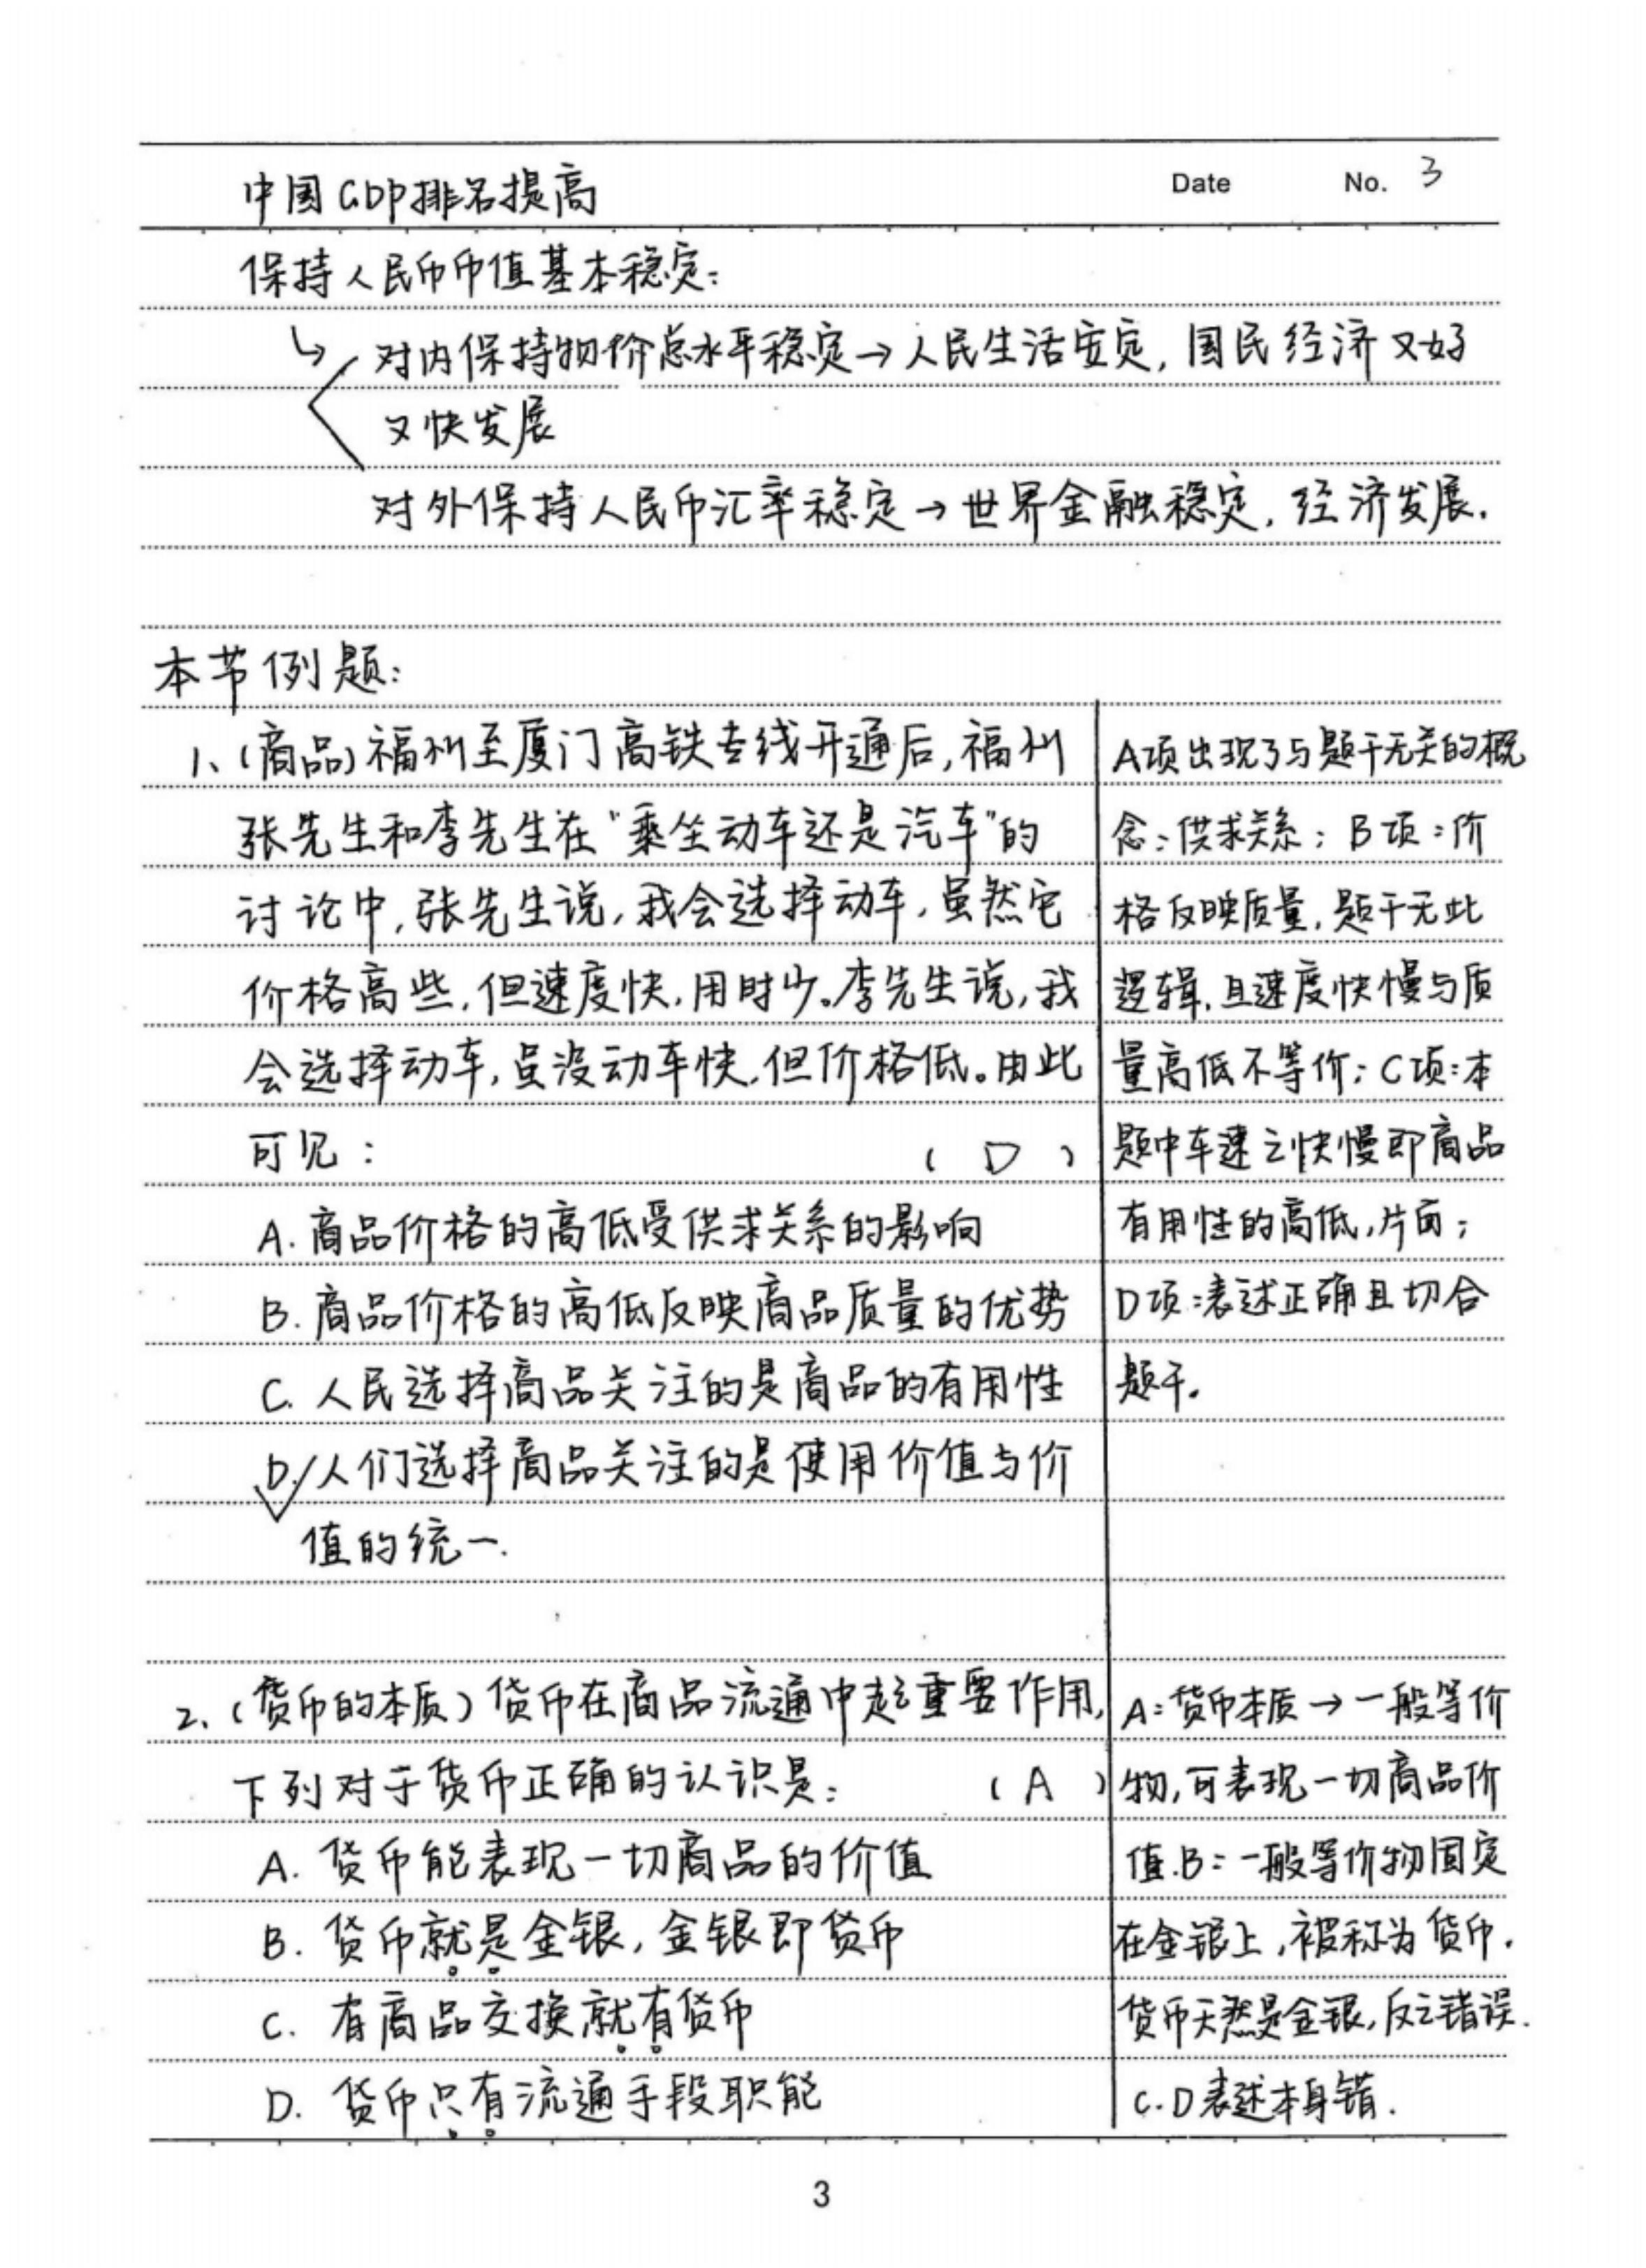 中国GDP排名提高
Date No. 3
保持人民币币值基本稳定:
↳ 对内保持物价总水平稳定→人民生活安定,国民经济又好
又快发展
对外保持人民币汇率稳定→世界金融稳定,经济发展.
本节例题:
1、(商品)福州至厦门高铁专线开通后,福州
张先生和李先生在"乘坐动车还是汽车"的
讨论中,张先生说,我会选择动车,虽然它
价格高些,但速度快,用时少。李先生说,我
会选择动车,虽没动车快,但价格低。由此
可见: ( D )
A. 商品价格的高低受供求关系的影响
B. 商品价格的高低反映商品质量的优势
C. 人民选择商品关注的是商品的有用性
D. 人们选择商品关注的是使用价值与价
值的统一.
A项出现了与题干无关的概
念:供求关系; B项:价
格反映质量,题干无此
逻辑,且速度快慢与质
量高低不等价; C项:本
题中车速之快慢即商品
有用性的高低,片面;
D项:表述正确且切合
题干。
2、(货币的本质)货币在商品流通中起重要作用,
下列对于货币正确的认识是: ( A )
A. 货币能表现一切商品的价值
B. 货币就是金银,金银即货币
C. 有商品交换就有货币
D. 货币只有流通手段职能
A:货币本质→一般等价
物,可表现一切商品价
值.B:一般等价物固定
在金银上,被称为货币.
货币天然是金银,反之错误.
C.D表述本身错.
3